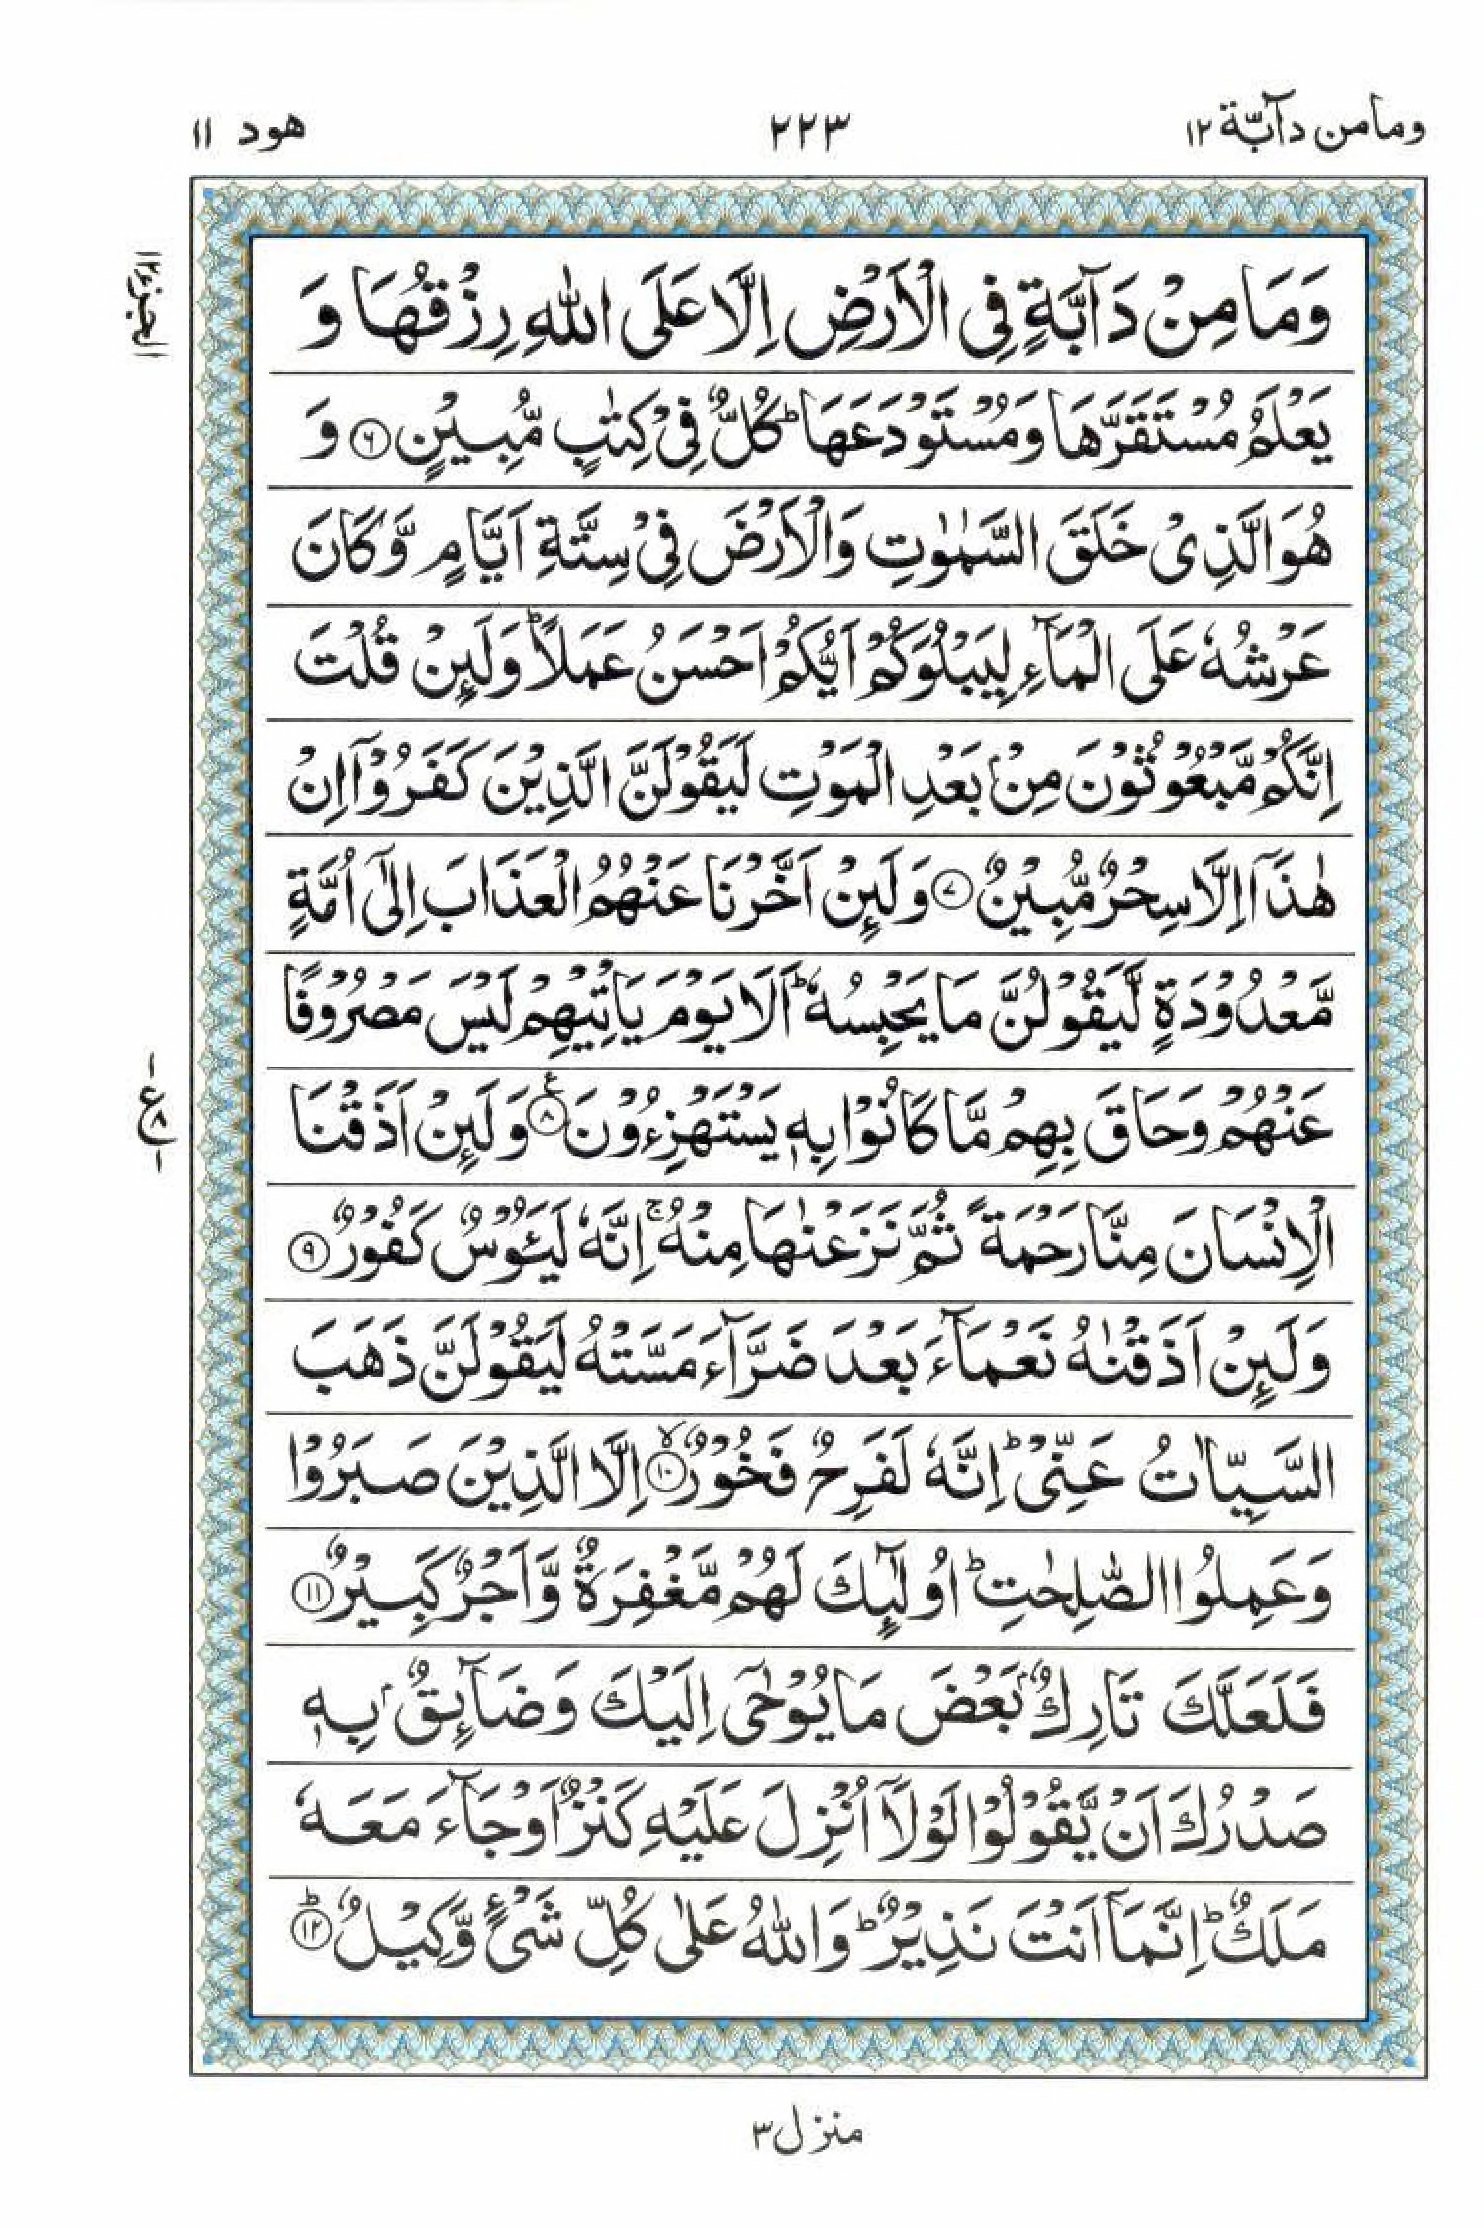 ومامن دآبّة ١٢
٢٢٣
هود ١١
الجزء ١٢
وَمَا مِنْ دَآبَّةٍ فِي الْاَرْضِ اِلَّا عَلَى اللّٰهِ رِزْقُهَا وَ
يَعْلَمُ مُسْتَقَرَّهَا وَمُسْتَوْدَعَهَا ؕ كُلٌّ فِيْ كِتٰبٍ مُّبِيْنٍ ۝٦ وَ
هُوَ الَّذِيْ خَلَقَ السَّمٰوٰتِ وَالْاَرْضَ فِيْ سِتَّةِ اَيَّامٍ وَّكَانَ
عَرْشُهٗ عَلَى الْمَآءِ لِيَبْلُوَكُمْ اَيُّكُمْ اَحْسَنُ عَمَلًا ؕ وَلَئِنْ قُلْتَ
اِنَّكُمْ مَّبْعُوْثُوْنَ مِنْۢ بَعْدِ الْمَوْتِ لَيَقُوْلَنَّ الَّذِيْنَ كَفَرُوْۤا اِنْ
هٰذَاۤ اِلَّا سِحْرٌ مُّبِيْنٌ ۝٧ وَلَئِنْ اَخَّرْنَا عَنْهُمُ الْعَذَابَ اِلٰۤى اُمَّةٍ
مَّعْدُوْدَةٍ لَّيَقُوْلُنَّ مَا يَحْبِسُهٗ ؕ اَلَا يَوْمَ يَاْتِيْهِمْ لَيْسَ مَصْرُوْفًا
عَنْهُمْ وَحَاقَ بِهِمْ مَّا كَانُوْا بِهٖ يَسْتَهْزِءُوْنَ ۝٨ ع وَلَئِنْ اَذَقْنَا
ع ٨
الْاِنْسَانَ مِنَّا رَحْمَةً ثُمَّ نَزَعْنٰهَا مِنْهُ ۚ اِنَّهٗ لَيَـُٔوْسٌ كَفُوْرٌ ۝٩
وَلَئِنْ اَذَقْنٰهُ نَعْمَآءَ بَعْدَ ضَرَّآءَ مَسَّتْهُ لَيَقُوْلَنَّ ذَهَبَ
السَّيِّاٰتُ عَنِّيْ ؕ اِنَّهٗ لَفَرِحٌ فَخُوْرٌ ۝١٠ ۙ اِلَّا الَّذِيْنَ صَبَرُوْا
وَعَمِلُوا الصّٰلِحٰتِ ؕ اُولٰٓئِكَ لَهُمْ مَّغْفِرَةٌ وَّاَجْرٌ كَبِيْرٌ ۝١١
فَلَعَلَّكَ تَارِكٌۢ بَعْضَ مَا يُوْحٰۤى اِلَيْكَ وَضَآئِقٌۢ بِهٖ
صَدْرُكَ اَنْ يَّقُوْلُوْا لَوْلَاۤ اُنْزِلَ عَلَيْهِ كَنْزٌ اَوْ جَآءَ مَعَهٗ
مَلَكٌ ؕ اِنَّمَاۤ اَنْتَ نَذِيْرٌ ؕ وَاللّٰهُ عَلٰى كُلِّ شَيْءٍ وَّكِيْلٌ ۝١٢ ؕ
منزل ٣